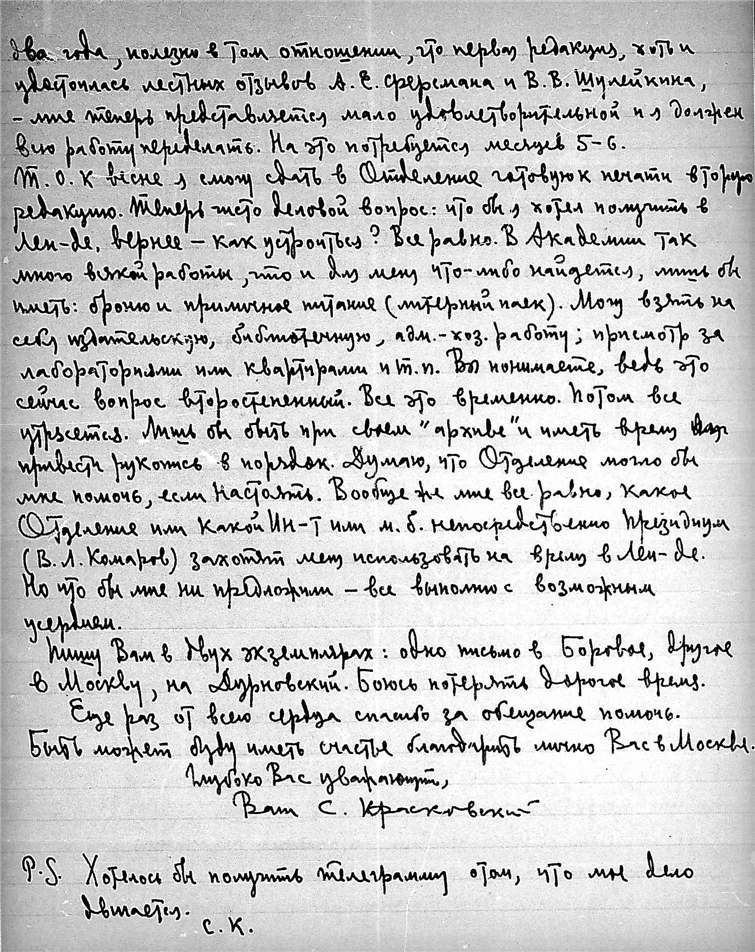 два года, полезно в том отношении, что первая редакция, хоть и
удостоилась лестных отзывов А. Е. Ферсмана и В. В. Шулейкина,
– мне теперь представляется мало удовлетворительной и я должен
всю работу переделать. На это потребуется месяцев 5-6.
Т. о. к весне я смогу сдать в Отделение готовую к печати вторую
редакцию. Теперь чисто деловой вопрос: что бы я хотел получить в
Лен-де, вернее – как устроиться? Все равно. В Академии так
много всякой работы, что и для меня что-либо найдется, лишь бы
иметь: броню и приличное питание (литерный паек). Могу взять на
себя издательскую, библиотечную, адм.-хоз. работу; присмотр за
лабораториями или квартирами и т. п. Вы понимаете, ведь это
сейчас вопрос второстепенный. Все это временно. Потом все
утрясется. Лишь бы быть при своем "архиве" и иметь время
привести рукопись в порядок. Думаю, что Отделение могло бы
мне помочь, если настоять. Вообще же мне все равно, какое
Отделение или какой Ин-т или м. б. непосредственно Президиум
(В. Л. Комаров) захотят меня использовать на время в Лен-де.
Но что бы мне ни предложили – все выполню с возможным
усердием.
Пишу Вам в двух экземплярах: одно письмо в Боровое, другое
в Москву, на Дурновский. Боюсь потерять дорогое время.
Еще раз от всего сердца спасибо за обещание помочь.
Быть может буду иметь счастье благодарить лично Вас в Москве.
Глубоко Вас уважающий,
Ваш С. Красковский
P.S. Хотелось бы получить телеграмму о том, что мое дело
двигается.
С. К.